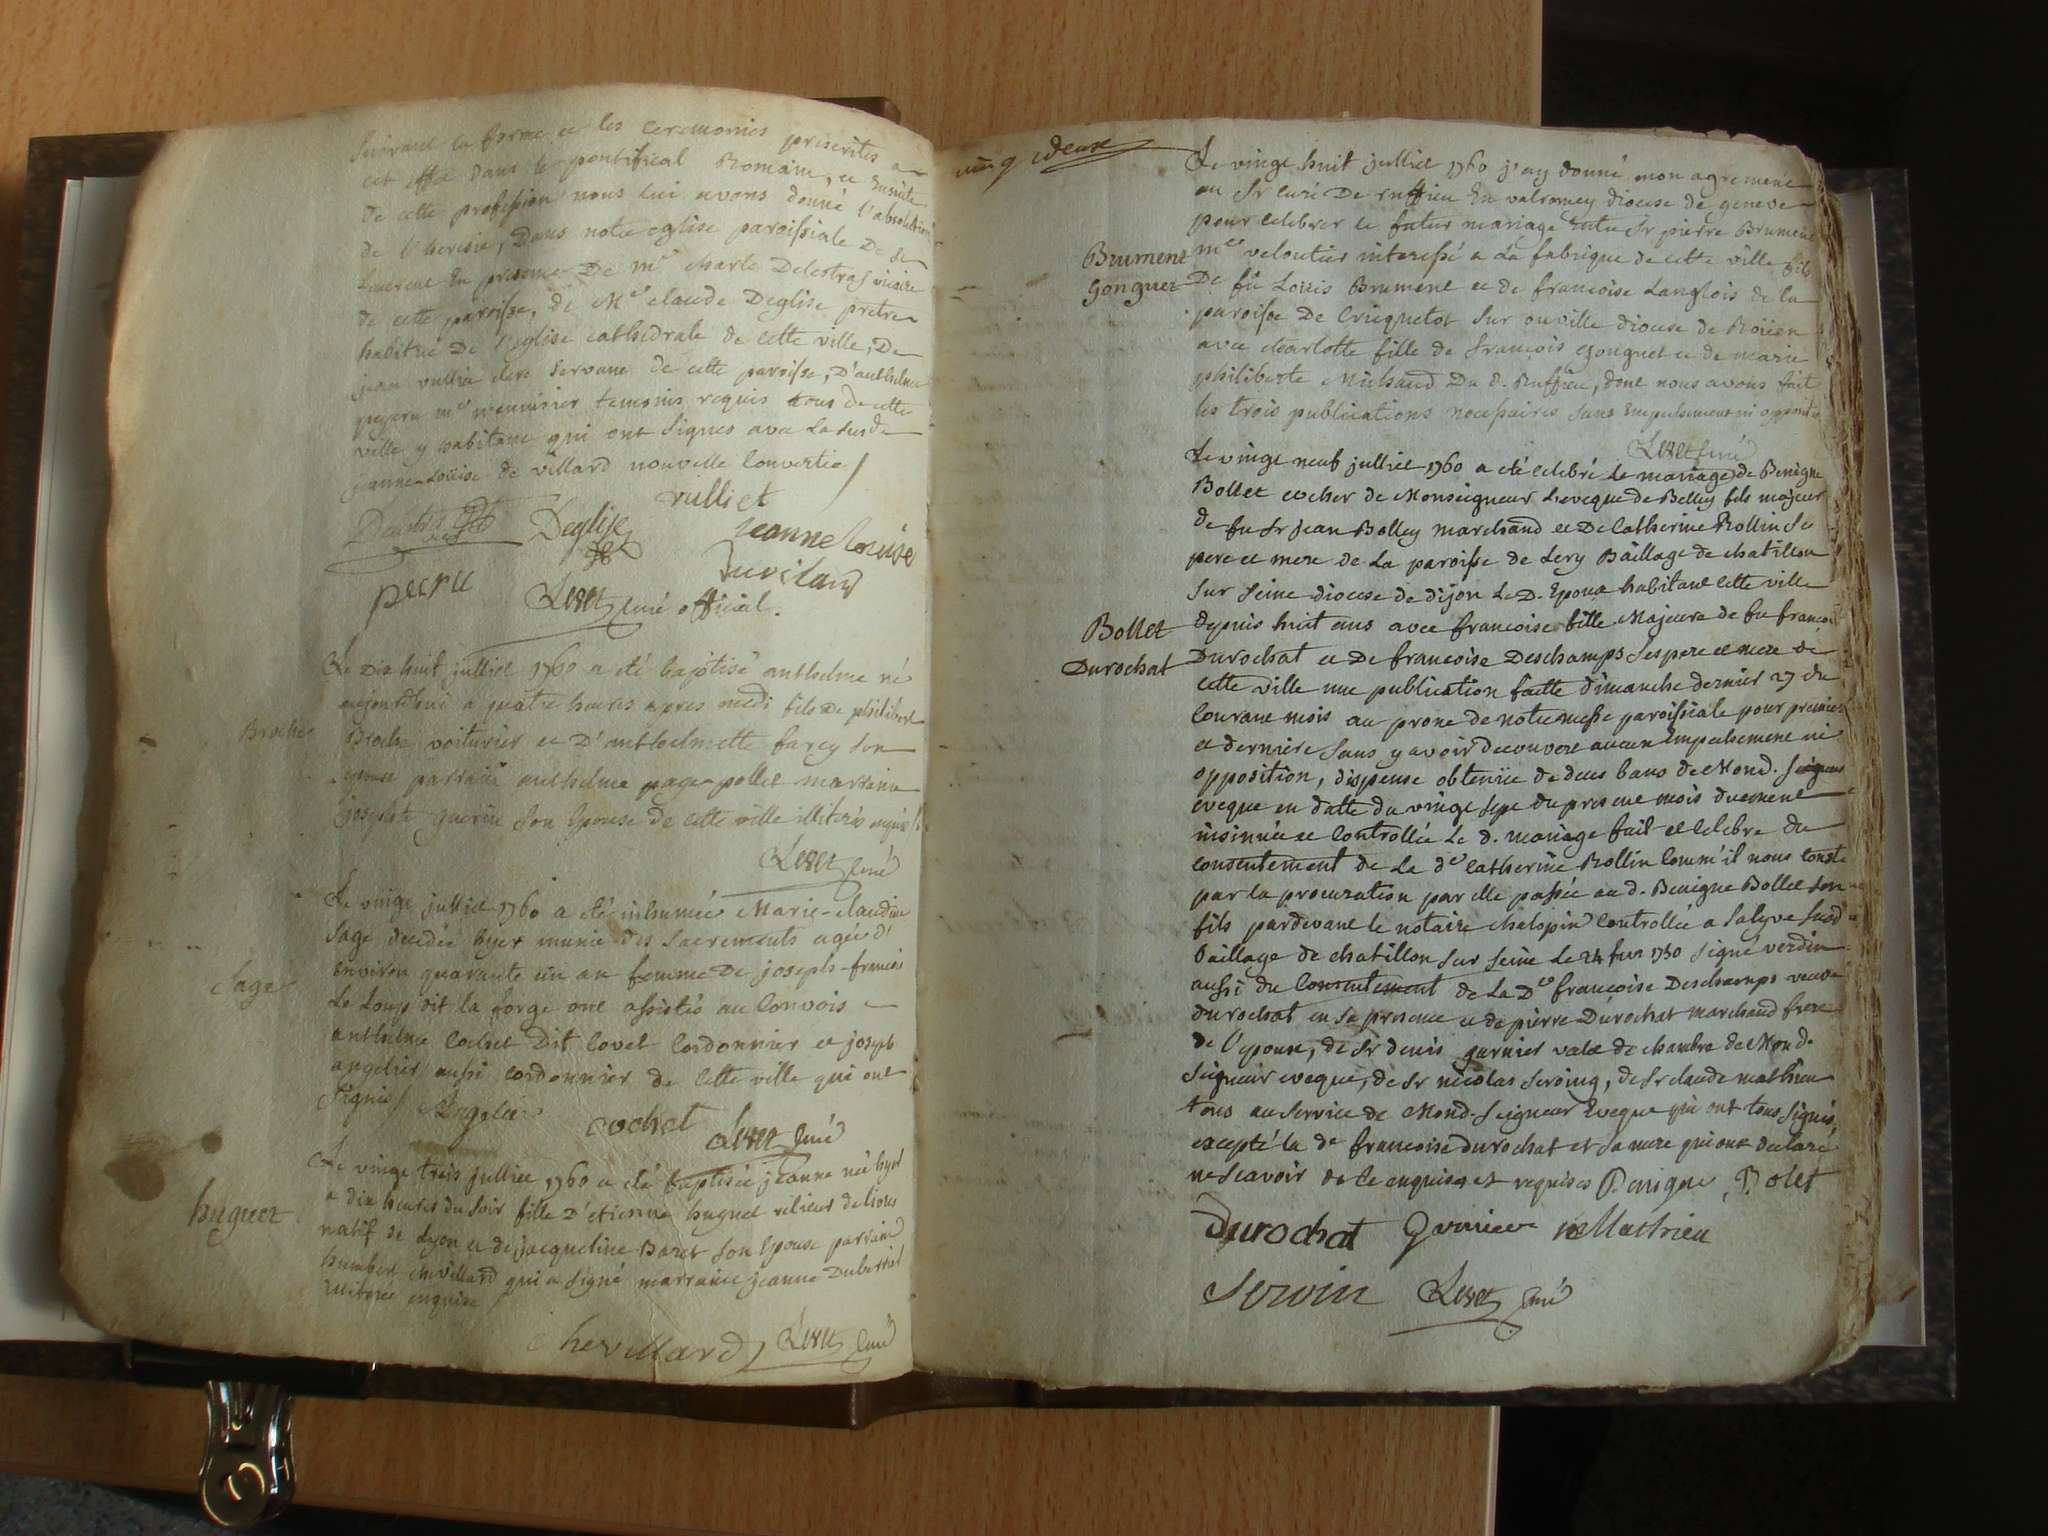 suivant la forme et les ceremonies prescrites a
cet effet dans le pontifical Romain, et Ensuite
de cette profession nous lui avons donné l'absolution
de l'heresie, Dans notre eglise paroissiale De St
Laurent En presence De mre charle Delestras vicaire
de cette paroisse, de Mre claude Deglise pretre
habitué De l'eglise cathedrale de cette ville, De
jean vulliet clerc servant de cette paroisse, D'anthelme
peyeru me menuisier temoins requis tous de cette
ville y habitant qui ont signes avec La susde
jeanne Loüise de villard nouvelle Convertie /
Deglise
vulliet
jeanne louise
duvilard
peeru
curé official.
Le dix huit julliet 1760 a été baptisé anthelme né
aujourdhui a quatre heures apres midi fils De philibert
Broche
Broche voiturier et D'anthelmette farcy son
epouse parrain anthelme page-pollet marraine
josephte guerin son Epouse de cette ville illiterés enquis
curé
Le vingt julliet 1760 a été inhumée Marie-claudine
Sage decedée hyer munie des sacrements agée d'
environ quarante un an femme De joseph-francois
Sage
Le Loup dit la forge ont assistés au Convois
anthelme cochet Dit lovet Cordonnier et joseph
angelier aussi cordonnier de cette ville qui ont
signés / Angelier
cochet
curé
Le vingt trois julliet 1760 a été baptisée jeanne née hyer
a dix heures du soir fille D'etienne huguet relieur de livres
huguet
natif de Lyon et de jacqueline Baret son Epouse parrain
humbert chevillard qui a signé marraine jeanne Duborriet
illiterée enquise
chevillard
curé
cinq
Le vingt huit julliet 1760 j'ay donné mon agrement
au Sr curé De ruffieu En valromey diocese de geneve
pour celebrer le futur mariage Entre Sr pierre Brument
Brument
Gonguet
me veloutier interessé a La fabrique de cette ville fils
De fü Loüis Brument et de francoise Langlois de la
paroisse De Cricquetot sur ouville diocese de Roüen
avec charlotte fille de françois Gonguet et de marie
philiberte Michaud Du d. Ruffieu, dont nous avons fait
les trois publications necessaires sans Empechement ni opposition
curé
Le vingt neuf julliet 1760 a été celebré le mariage de Benigne
Bollet cocher de Monseigneur Leveque de Belley fils majeur
de fu Sr jean Bolley marchand et De Catherine Rollin ses
pere et mere de La paroisse de Lery Baillage de chatillon
sur seine diocese de dijon Le D. Epoux habitant cette ville
Bollet
Durochat
depuis huit ans avec francoise fille Majeure de fu francois
Durochat et De francoise Deschamps ses pere et mere de
cette ville une publication faitte dimanche dernier 27 du
Courant mois au prone de notre messe paroissiale pour premiere
et derniere sans y avoir decouvert aucun Empechement ni
opposition, dispense obtenüe de deux bans de Mond. seigneur
eveque en datte du vingt sept du present mois duement
insinuée et Controllée Le d. mariage fait et celebré du
consentement de La de Catherine Rollin Comm'il nous conste
par la procuration par elle passée au d. Benigne Bollet son
fils pardevant le notaire chalopin Controllée a salyve susd
baillage de chatillon sur seine Le 24 1750 signé verdin
aussi du Consentement de La De francoise Deschamps veuve
durochat en sa presence et de pierre Durochat marchand frere
de l'epouse, de Sr denis garnier valet de chambre de Mond.
seigneur eveque, de Sr nicolas seroing, de Sr claude mathieu
tous au service de Mond. seigneur Eveque qui ont tous signés,
excepté la de francoise durochat et sa mere qui ont declaré
ne scavoir de ce enquises et requises Benigne Bolet
Durochat Garnier Mathieu
Servin
curé